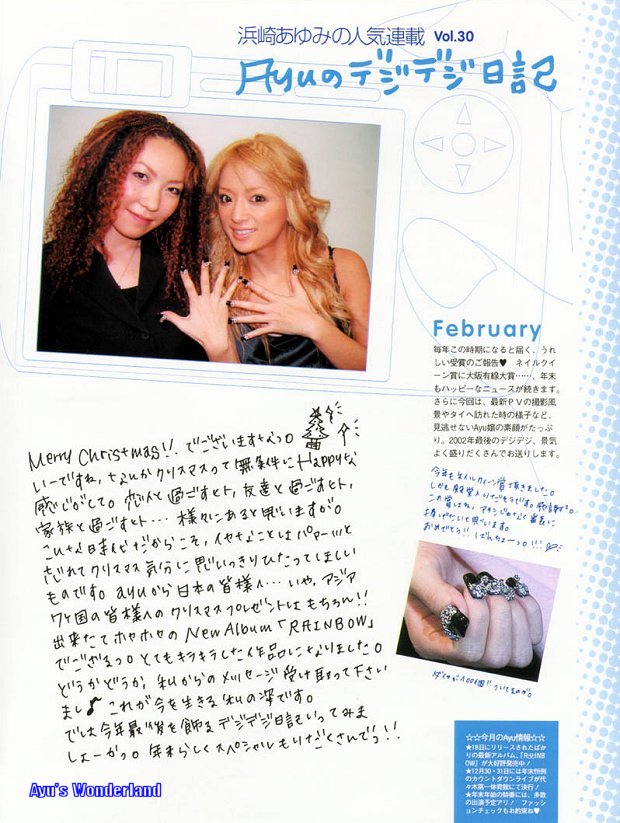 浜崎あゆみの人気連載 Vol.30
Ayuのデジデジ日記
February
毎年この時期になると届く、うれ
しい受賞のご報告♥ ネイルクイ
ーン賞に大阪有線大賞……、年末
もハッピーなニュースが続きます。
さらに今回は、最新PVの撮影風
景やタイへ訪れた時の様子など、
見逃せないAyu嬢の素顔がたっぷ
り。2002年最後のデジデジ、景気
よく盛りだくさんでお送りします。
Merry Christmas!! でございますなっ。
いーですね、なんかクリスマスって無条件にHappyな
感じがして。恋人と過ごすヒト、友達と過ごすヒト、
家族と過ごすヒト…様々にあると思いますが。
こんな日本だからこそ、イヤなことはパァーッと
忘れてクリスマス気分に思いっきりひたってほしい
ものです。ayuから日本の皆様へ…いや、アジア
7ヶ国の皆様へのクリスマスプレゼントはもちろん!!
出来たてホヤホヤのNew Album「RAINBOW」
でござるっ。とてもキラキラした作品になりました。
どうかどうか、私からのメッセージ受け取って下さい
まし♪ これが今を生きる私の姿です。
では今年最後を飾るデジデジ日記いってみま
しょーかっ。年末らしくスペシャルもりだくさんでっ!!
今年もネイルクイーン賞頂きました。
しかも殿堂入りだそうです。感謝。
おめでとう!! ばんちょーっ!!!
ダイヤが100個ついてるのが。
☆☆今月のAyu情報☆☆
★18日にリリースされたばか
りの最新アルバム、「RAINB
OW」が大好評発売中！
★12月30・31日には年末恒例
のカウントダウンライブが代
々木第一体育館にて決行！
★年末年始の特番には、多数
の出演予定アリ！ ファッショ
ンチェックもお約束ね♥
Ayu's Wonderland